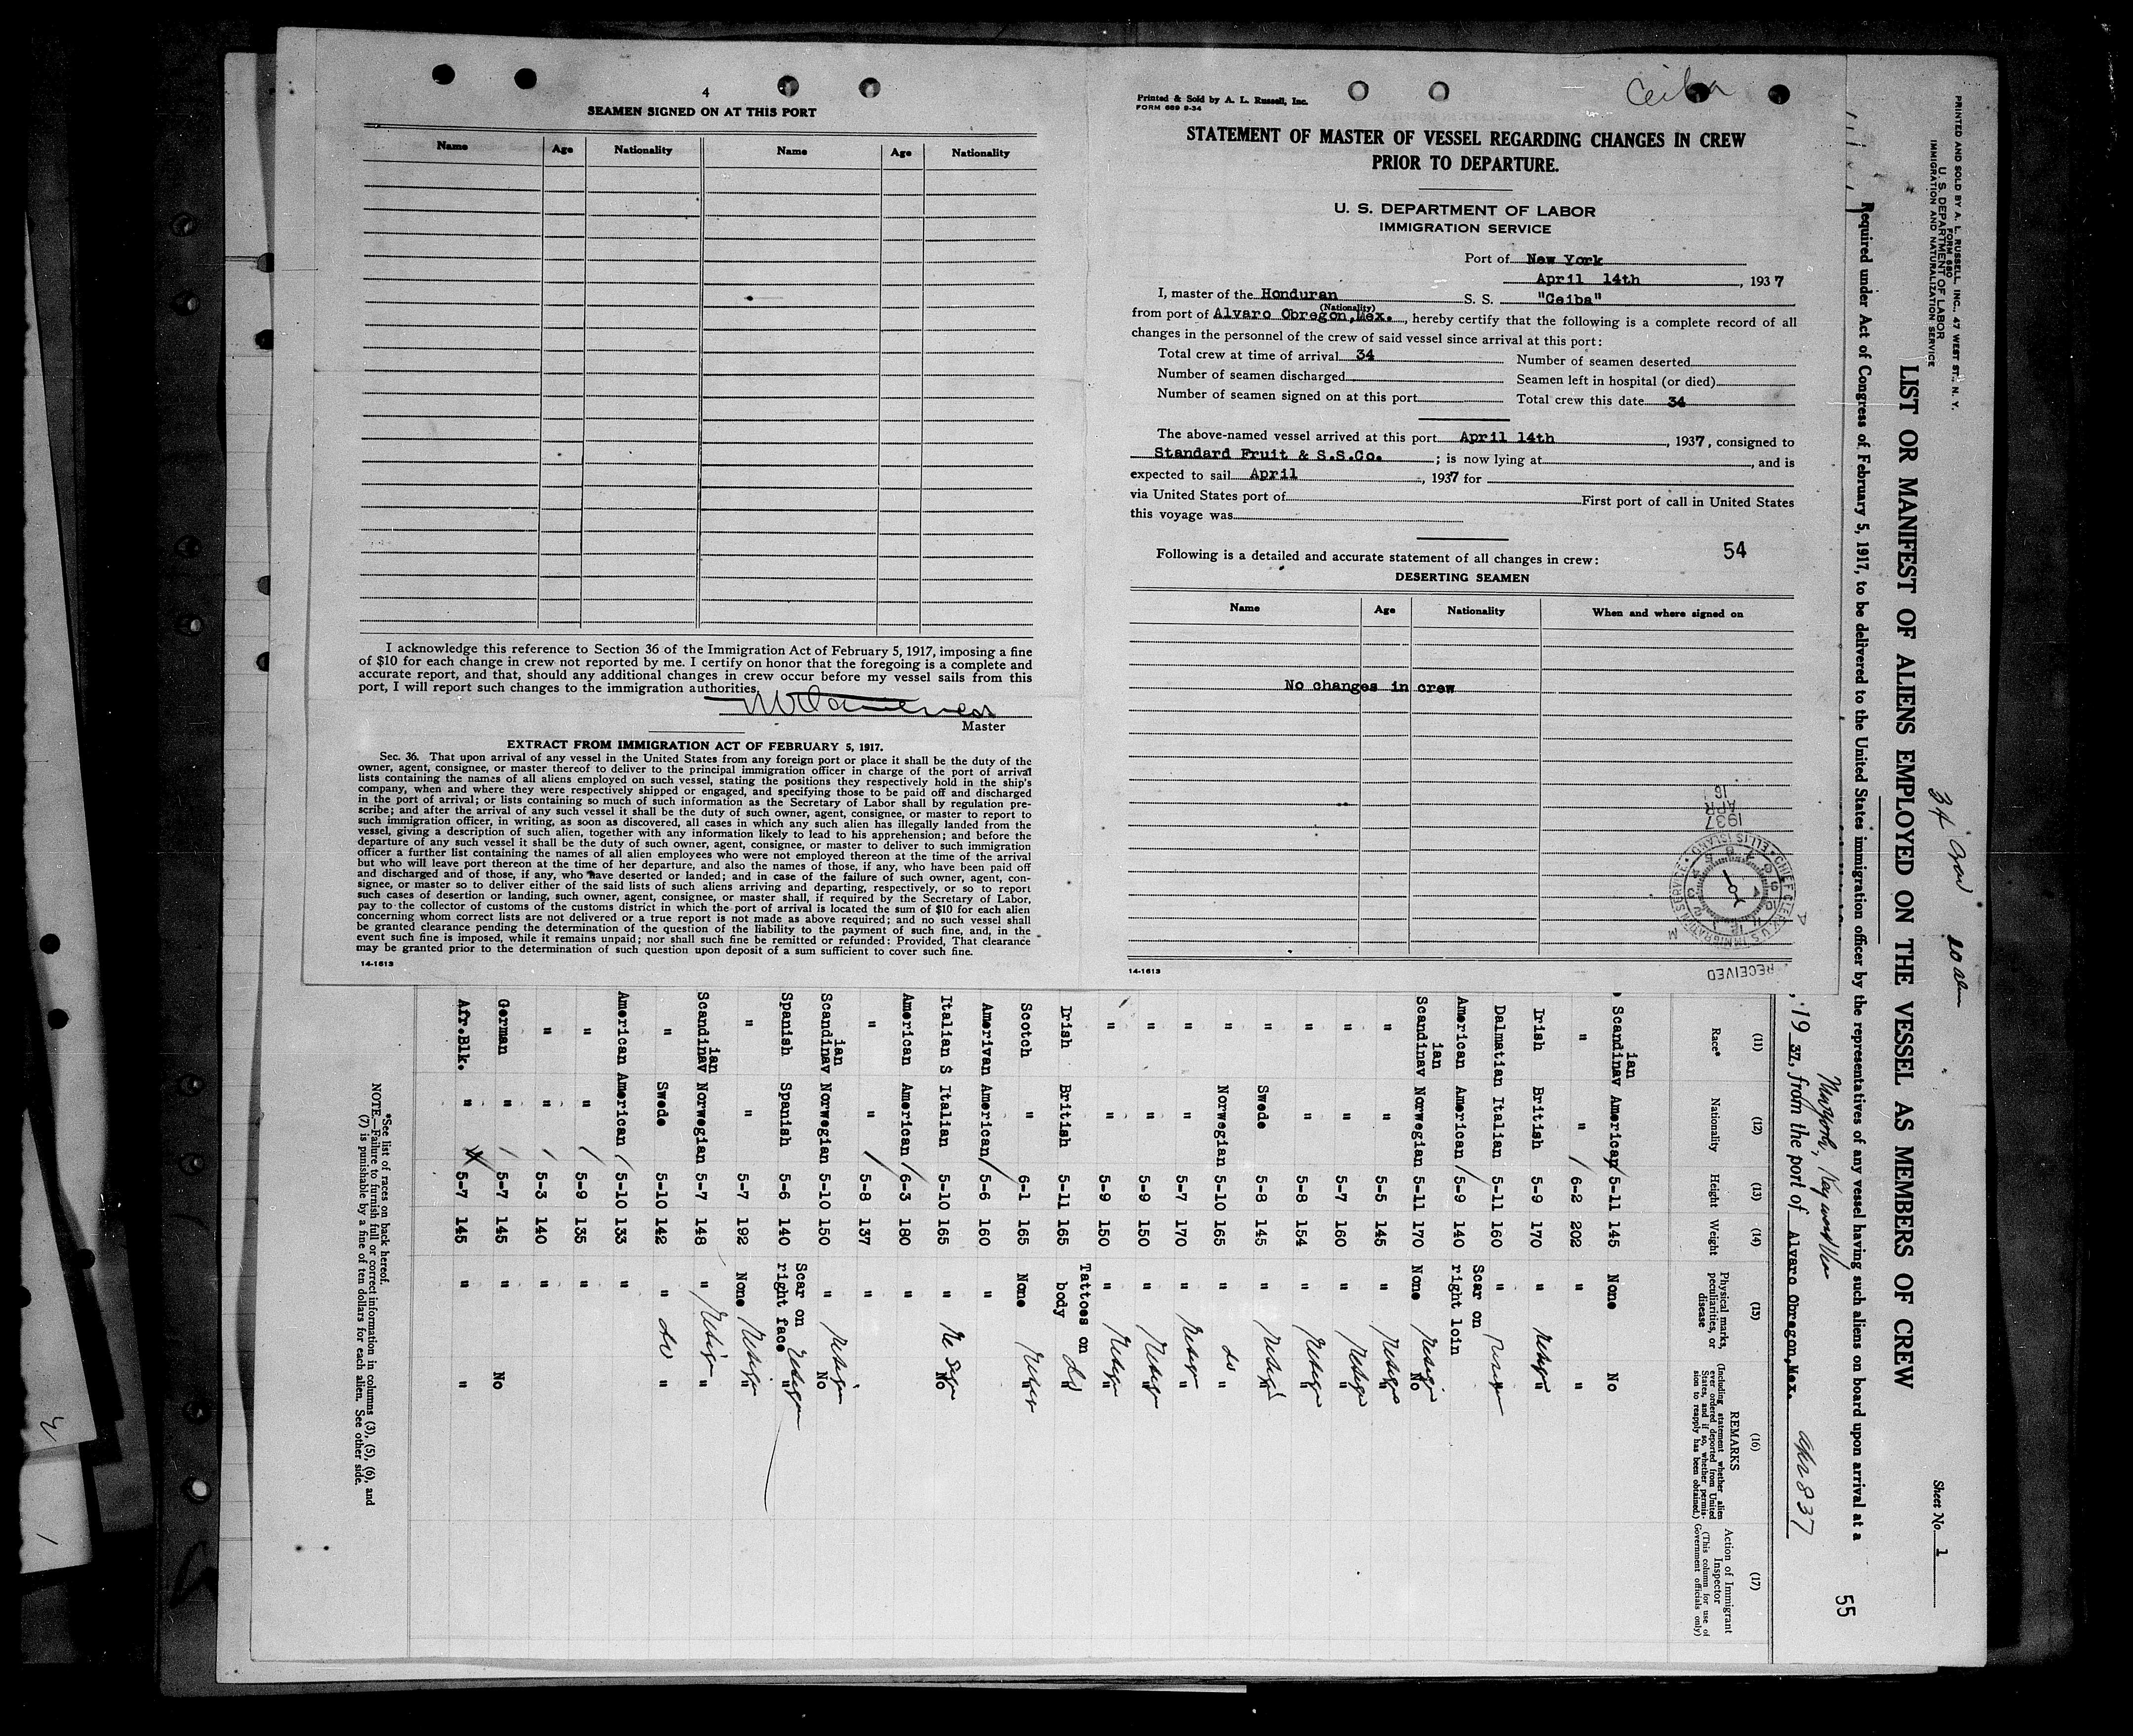 4
SEAMEN SIGNED ON AT THIS PORT
Name Age Nationality Name Age Nationality
I acknowledge this reference to Section 36 of the Immigration Act of February 5, 1917, imposing a fine
of $10 for each change in crew not reported by me. I certify on honor that the foregoing is a complete and
accurate report, and that, should any additional changes in crew occur before my vessel sails from this
port, I will report such changes to the immigration authorities.
Master
EXTRACT FROM IMMIGRATION ACT OF FEBRUARY 5, 1917.
Sec. 36. That upon arrival of any vessel in the United States from any foreign port or place it shall be the duty of the
owner, agent, consignee, or master thereof to deliver to the principal immigration officer in charge of the port of arrival
lists containing the names of all aliens employed on such vessel, stating the positions they respectively hold in the ship's
company, when and where they were respectively shipped or engaged, and specifying those to be paid off and discharged
in the port of arrival; or lists containing so much of such information as the Secretary of Labor shall by regulation pre-
scribe; and after the arrival of any such vessel it shall be the duty of such owner, agent, consignee, or master to report to
such immigration officer, in writing, as soon as discovered, all cases in which any such alien has illegally landed from the
vessel, giving a description of such alien, together with any information likely to lead to his apprehension; and before the
departure of any such vessel it shall be the duty of such owner, agent, consignee, or master to deliver to such immigration
officer a further list containing the names of all alien employees who were not employed thereon at the time of the arrival
but who will leave port thereon at the time of her departure, and also the names of those, if any, who have been paid off
and discharged and of those, if any, who have deserted or landed; and in case of the failure of such owner, agent, con-
signee, or master so to deliver either of the said lists of such aliens arriving and departing, respectively, or so to report
such cases of desertion or landing, such owner, agent, consignee, or master shall, if required by the Secretary of Labor,
pay to the collector of customs of the customs district in which the port of arrival is located the sum of $10 for each alien
concerning whom correct lists are not delivered or a true report is not made as above required; and no such vessel shall
be granted clearance pending the determination of the question of the liability to the payment of such fine, and, in the
event such fine is imposed, while it remains unpaid; nor shall such fine be remitted or refunded: Provided, That clearance
may be granted prior to the determination of such question upon deposit of a sum sufficient to cover such fine.
14-1613
Printed & Sold by A. L. Russell, Inc.
FORM 689 9-34
Ceiba
STATEMENT OF MASTER OF VESSEL REGARDING CHANGES IN CREW
PRIOR TO DEPARTURE.
U. S. DEPARTMENT OF LABOR
IMMIGRATION SERVICE
Port of New York
April 14th, 1937
I, master of the Honduran S. S. "Ceiba"
(Nationality)
from port of Alvaro Obregon,Mex., hereby certify that the following is a complete record of all
changes in the personnel of the crew of said vessel since arrival at this port:
Total crew at time of arrival 34 Number of seamen deserted
Number of seamen discharged Seamen left in hospital (or died)
Number of seamen signed on at this port Total crew this date 34
The above-named vessel arrived at this port April 14th, 1937, consigned to
Standard Fruit & S.S.Co.; is now lying at, and is
expected to sail April, 1937 for
via United States port of First port of call in United States
this voyage was
54
Following is a detailed and accurate statement of all changes in crew:
DESERTING SEAMEN
Name Age Nationality When and where signed on
No changes in crew
1937
APR
16
CHIEF CLERK U.S. IMMIGRATION SERVICE • ELLIS ISLAND
RECEIVED
14-1613
PRINTED AND SOLD BY A. L. RUSSELL, INC., 47 WEST ST., N. Y.
FORM 680
U. S. DEPARTMENT OF LABOR
IMMIGRATION AND NATURALIZATION SERVICE
Sheet No. 1
LIST OR MANIFEST OF ALIENS EMPLOYED ON THE VESSEL AS MEMBERS OF CREW
55
Required under Act of Congress of February 5, 1917, to be delivered to the United States immigration officer by the representatives of any vessel having such aliens on board upon arrival at a
, 19 37, from the port of Alvaro Obregon,Mex. Apr 8 37
(11) (12) (13) (14) (15) (16) (17)
Race* Nationality Height Weight Physical marks, peculiarities, or disease
REMARKS
(Including statement whether alien ever ordered deported from United States, and if so, whether permission to reapply has been obtained.)
Action of Immigrant Inspector
(This column for use of Government officials only)
Scandinavian American 5-11 145 None No
" " 6-2 202 " "
Irish British 5-9 170 " "
Dalmatian Italian 5-11 160 "
American American 5-9 140 Scar on right loin
Scandinavian Norwegian 5-11 170 None No
" " 5-5 145 " "
" " 5-7 160 " "
" " 5-8 154 " "
" Swede 5-8 145 " "
" Norwegian 5-10 165 " "
" " 5-7 170 " "
" " 5-9 150 " "
" " 5-9 150 " "
Irish British 5-11 165 Tattoes on body "
Scotch " 6-1 165 None "
Amerivan American 5-6 160 "
Italian S Italian 5-10 165 " No
American American 6-3 180 "
" " 5-8 137 "
Scandinavian Norwegian 5-10 150 " No
Spanish Spanish 5-6 140 Scar on right face "
" " 5-7 192 None "
Scandinavian Norwegian 5-7 148 " "
" Swede 5-10 142 " "
American American 5-10 133 "
" " 5-9 135 "
" " 5-3 140 "
German " 5-7 145 " No
Afr.Blk. " 5-7 145 " "
*See list of races on back hereof.
NOTE.—Failure to furnish full or correct information in columns (3), (5), (6), and
(7) is punishable by a fine of ten dollars for each alien. See other side.